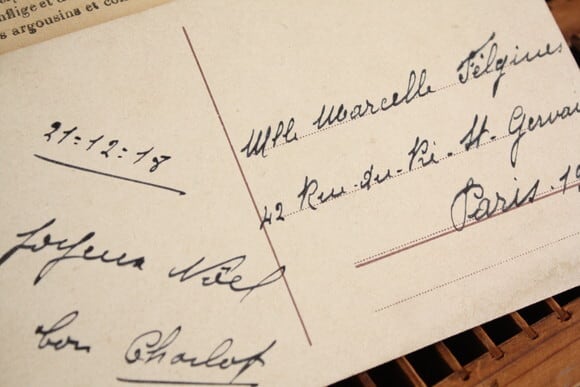 nflige et
s argousins et com
21=12=18
Joyeux Noël
bon Charlot
Mlle Marcelle Félgines
42 Rue-du-Pré-St. Gervai
Paris. 19